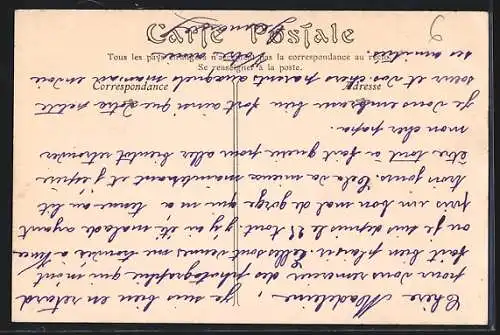 Carte Postale
Tous les pays étrangers n'acceptent pas la correspondance au recto.
Se renseigner à la poste.
Correspondance
Adresse
Chère Madeleine, je suis bien en retard
pour vous remercier des photographies qui m'ont
fait bien plaisir. Celles sont venues me trouver à
où je suis depuis le 25 j'y ai été malade ayant
pris un bon mal de gorge qui m'a tenue au lit
trois jours. Cela va mieux maintenant et j'espère
être tout à fait guérie pour aller bientôt retrouver
mon cher papa.
Je vous embrasse bien fort ainsi que votre petite
sœur et vos chers parents auxquels maman envoie
ses amitiés.